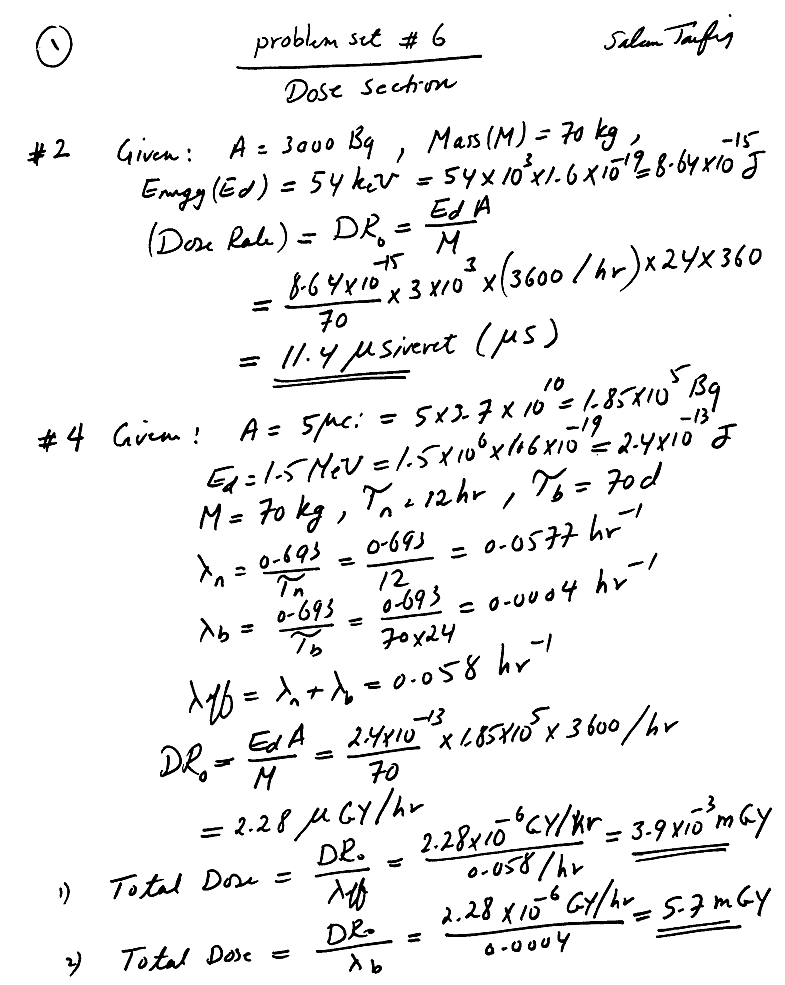 ① problem set # 6 Salam Taufiq
Dose section
#2 Given: A = 3000 Bq , Mass(M) = 70 kg ,
Energy(Ed) = 54 keV = 54 × 10³ × 1.6 × 10⁻¹⁹ = 8.64×10⁻¹⁵ J
(Dose Rate) = DR₀ = Ed A / M
= 8.64×10⁻¹⁵ / 70 × 3×10³ × (3600 / hr) × 24 × 360
= 11.4 μsiveret (μS)
#4 Given: A = 5μci = 5×3.7×10¹⁰ = 1.85×10⁵ Bq
Ed = 1.5 MeV = 1.5×10⁶×1.6×10⁻¹⁹ = 2.4×10⁻¹³ J
M = 70 kg , Tn = 12hr , Tb = 70d
λn = 0.693 / Tn = 0.693 / 12 = 0.0577 hr⁻¹
λb = 0.693 / Tb = 0.693 / 70×24 = 0.0004 hr⁻¹
λeff = λn + λb = 0.058 hr⁻¹
DR₀ = Ed A / M = 2.4×10⁻¹³ / 70 × 1.85×10⁵ × 3600 /hr
= 2.28 μ GY/hr
1) Total Dose = DR₀ / λeff = 2.28×10⁻⁶ GY/hr / 0.058/hr = 3.9×10⁻³ mGY
2) Total Dose = DR₀ / λb = 2.28×10⁻⁶ GY/hr / 0.0004 = 5.7 mGY